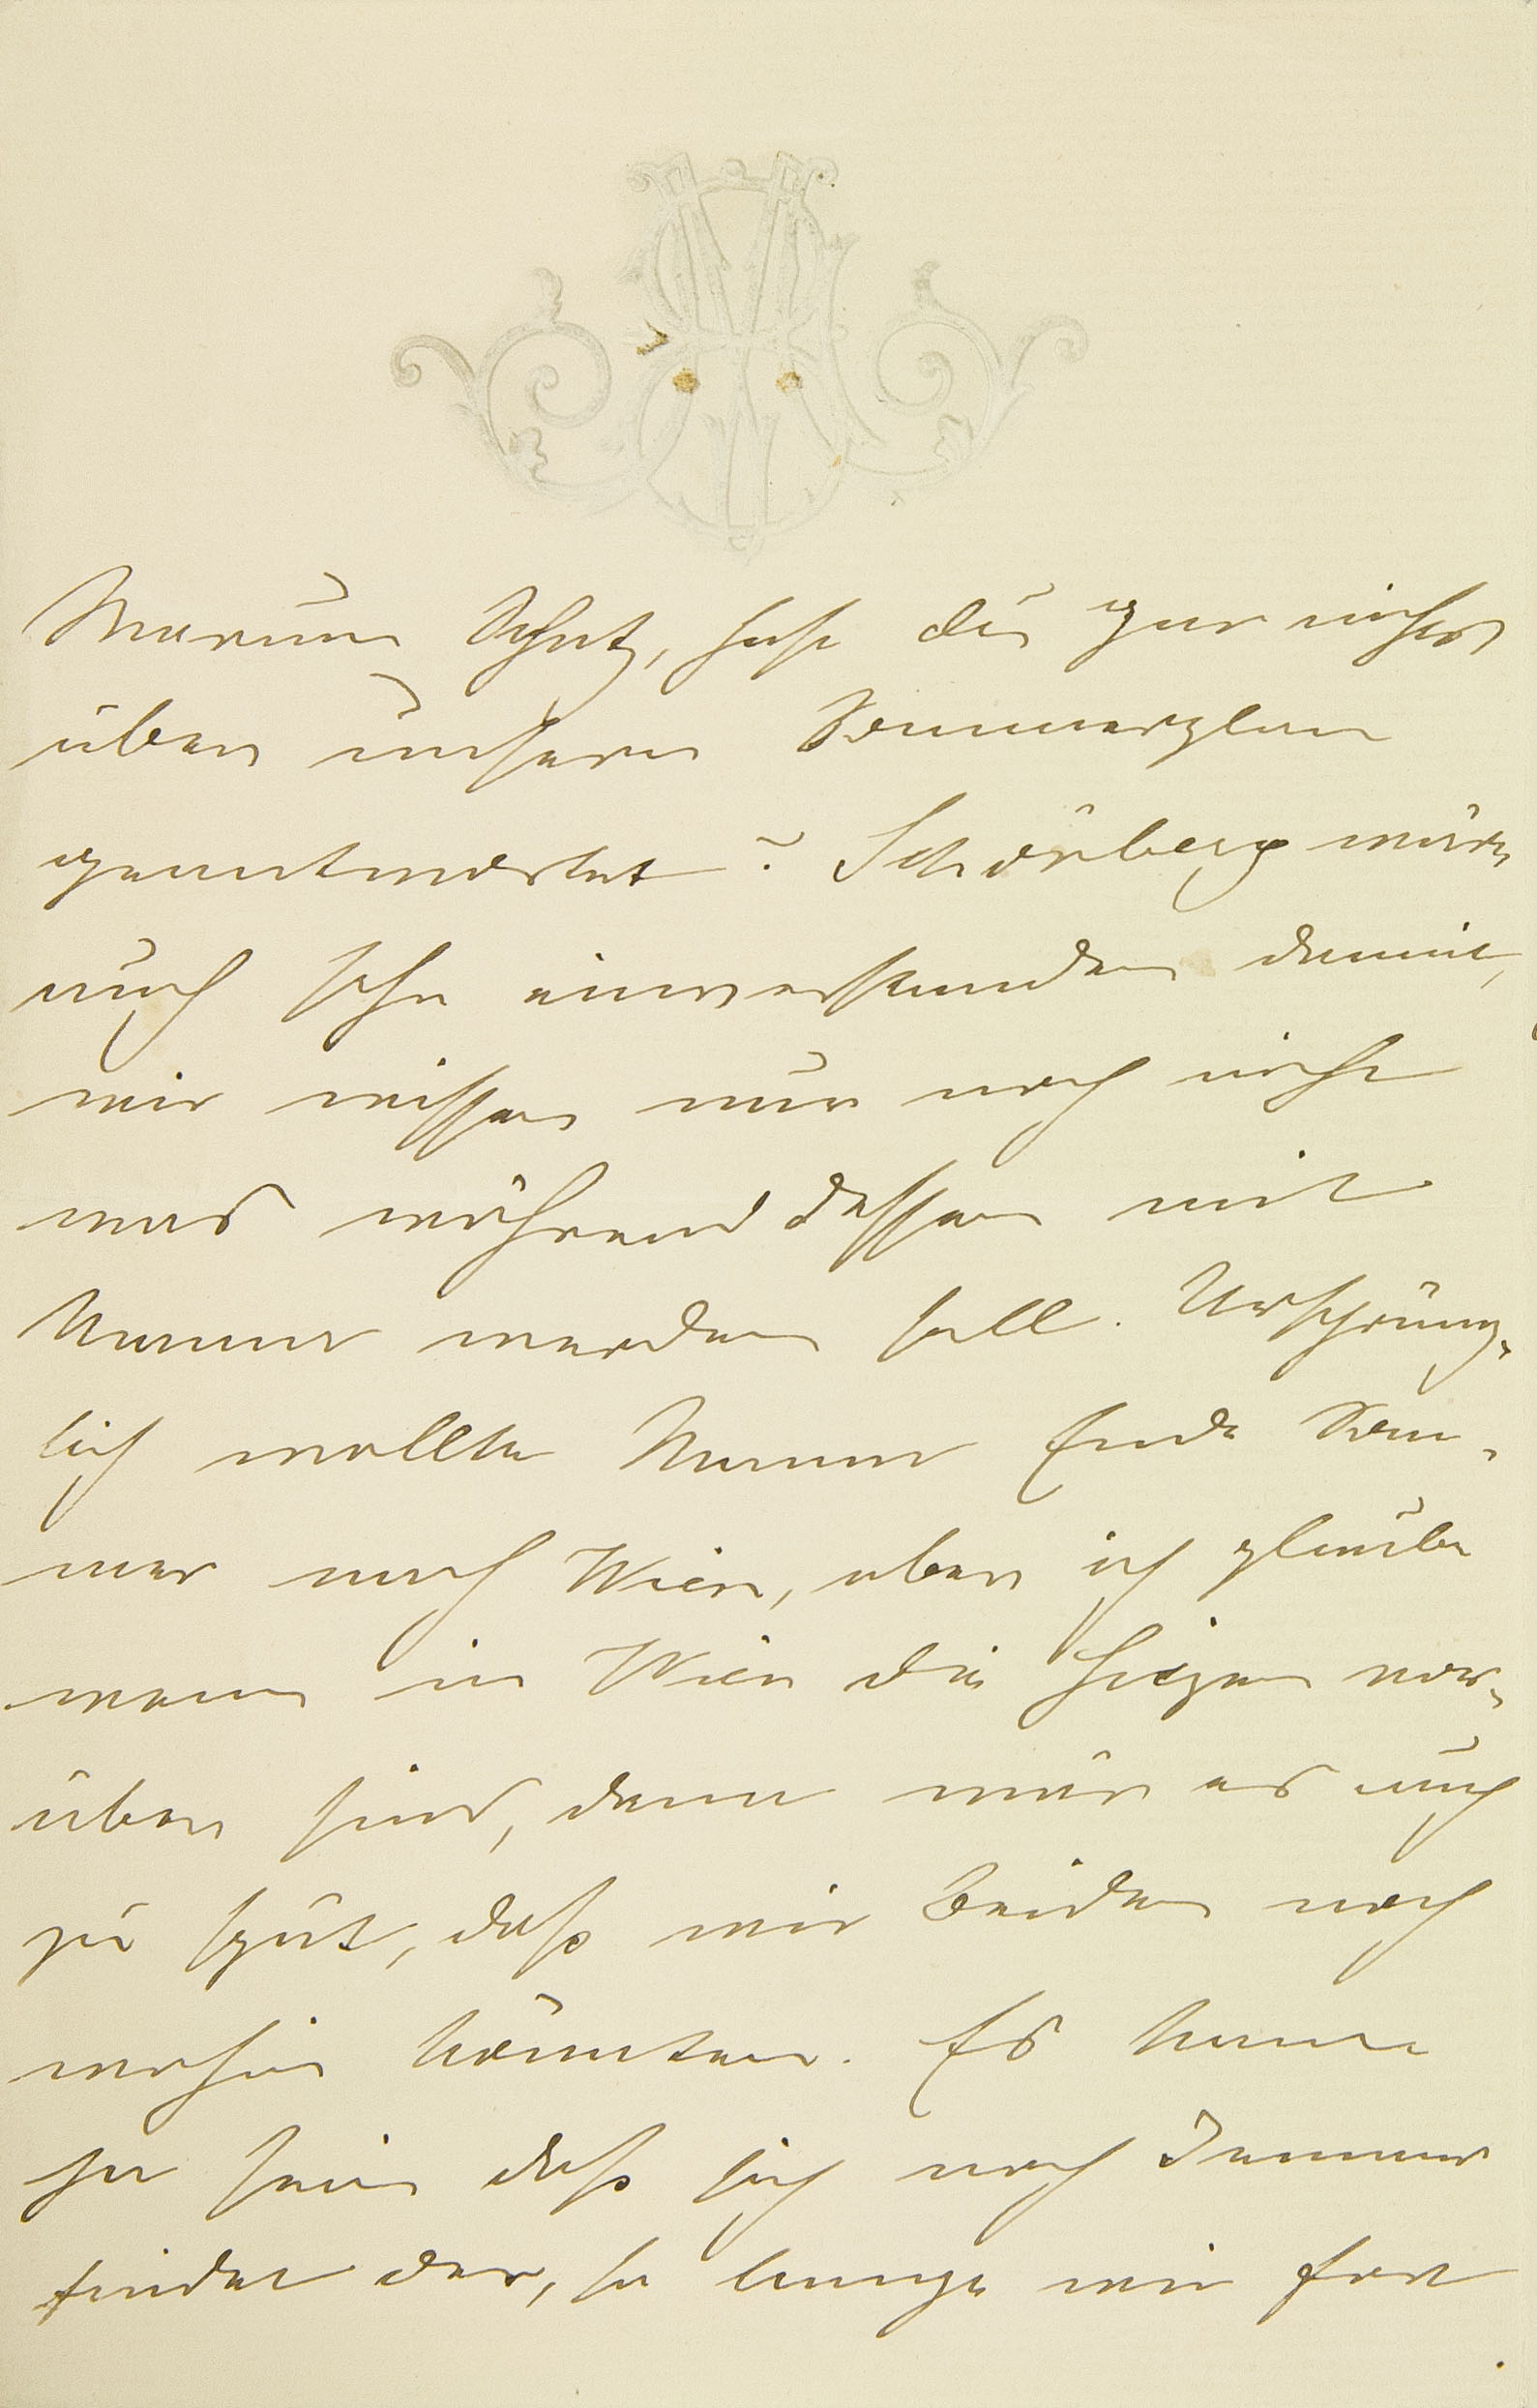 Warum Schatz, hast du gar nichts
über unsern Sommerplan
geantwortet? Schönberg wäre
auch sehr einverstanden damit,
wir wissen nur noch nicht
was während dessen mit
Mama werden soll. Ursprüng-
lich wollte Mama Ende Som-
mer nach Wien, aber ich glaube
wenn in Wien die Hitzen vor-
über sind, dann wär es auch
zu spät, daß wir Beiden noch
wohin könnten. Es kann
ja sein daß sich noch Jemand
findet der, so lange wir fort